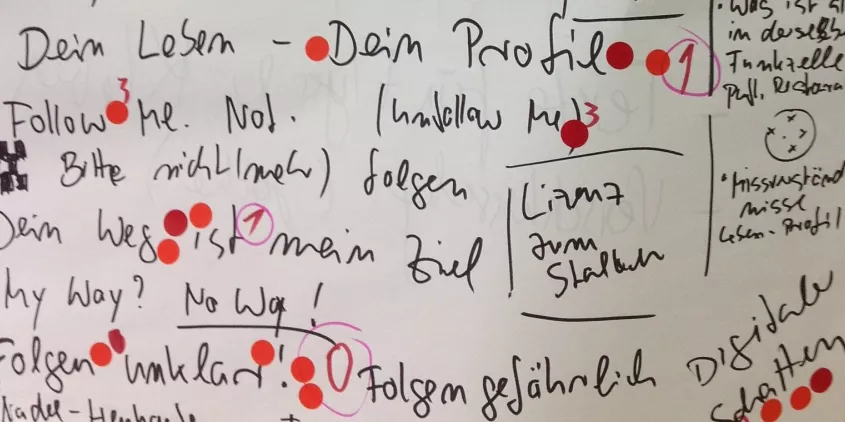 Dein Leben - Dein Profil 1
Follow 3 Me. Not. (Unfollow Me) 3
Bitte nicht (mehr) folgen
Dein Weg ist 1 mein Ziel
My Way? No Way!
Folgen unklar! 0 Folgen gefährlich
Lizenz
zum
Stalken
• Was ist
in derselb
Funkzelle
• Missverständ
nisse
Leben - Profil
Digitale
Schatten
Nadel-Heuhaufe